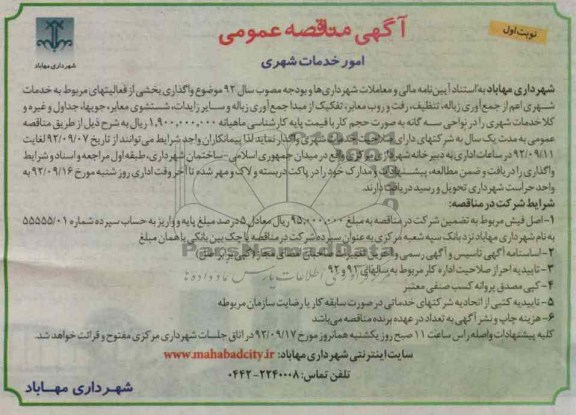 نوبت اول
آگهی مناقصه عمومی
امور خدمات شهری
شهرداری مهاباد
شهرداری مهاباد به استناد آیین نامه مالی و معاملات شهرداری ها و بودجه مصوب سال ۹۲ موضوع واگذاری بخشی از فعالیتهای مربوط به خدمات
شهری اعم از جمع آوری زباله، تنظیف، رفت و روب معابر، تفکیک از مبدا جمع آوری زباله و سایر زایدات، شستشوی معابر، جویها، جداول و غیره و
کلا خدمات شهری را در نواحی سه گانه به صورت حجم کار با قیمت پایه کارشناسی ماهیانه ۱,۹۰۰,۰۰۰,۰۰۰ ریال به شرح ذیل از طریق مناقصه
عمومی به مدت یک سال به شرکتهای دارای صلاحیت خدمات شهری واگذار نماید لذا پیمانکاران واجد شرایط می توانند از تاریخ ۹۲/۰۹/۰۷ لغایت
۹۲/۰۹/۱۱ در ساعات اداری به دبیرخانه شهرداری مرکزی واقع در میدان جمهوری اسلامی - ساختمان شهرداری، طبقه اول مراجعه و اسناد و شرایط
واگذاری را دریافت و ضمن مطالعه، پیشنهادات و مدارک خود را در پاکت دربسته و لاک و مهر شده تا آخر وقت اداری روز شنبه مورخ ۹۲/۰۹/۱۶ به
واحد حراست شهرداری تحویل و رسید دریافت دارند.
شرایط شرکت در مناقصه:
۱- اصل فیش مربوط به تضمین شرکت در مناقصه به مبلغ ۹۵,۰۰۰,۰۰۰ ریال معادل ۵ درصد مبلغ پایه و واریز به حساب سپرده شماره ۵۵۵۵۵/۰۱
به نام شهرداری مهاباد نزد بانک سپه شعبه مرکزی به عنوان سپرده شرکت در مناقصه یا چک بین بانکی با همان مبلغ
۲- اساسنامه آگهی تاسیس و آگهی رسمی و آخرین تغییرات صاحبان امضای مجاز
۳- تاییدیه احراز صلاحیت اداره کار مربوط به سالهای ۹۲ و ۹۳
۴- کپی مصدق پروانه کسب صنفی معتبر
۵- تاییدیه کتبی از اتحادیه شرکتهای خدماتی در صورت سابقه کار یا رضایت سازمان مربوطه
۶- هزینه چاپ و نشر آگهی به تعداد در عهده برنده مناقصه می باشد
کلیه پیشنهادات واصله راس ساعت ۱۱ صبح روز یکشنبه همانروز مورخ ۹۲/۰۹/۱۷ در اتاق جلسات شهرداری مرکزی مفتوح و قرائت خواهد شد.
سایت اینترنتی شهرداری مهاباد: www.mahabadcity.ir
تلفن تماس: ۲۲۴۰۰۰۸-۰۴۴۲
شهرداری مهاباد
ParsNamadData